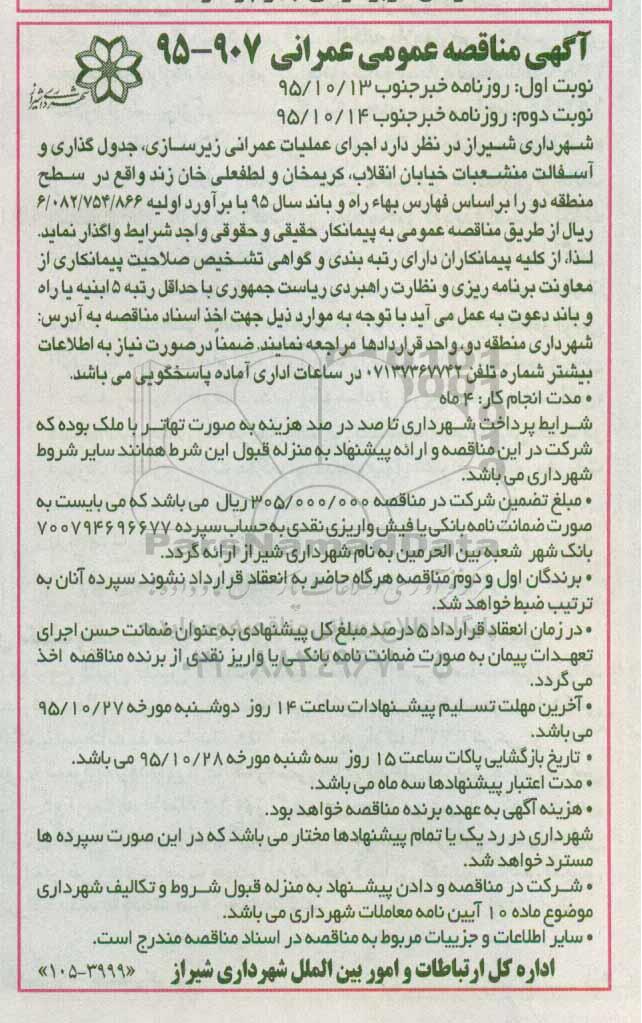 آگهی مناقصه عمومی عمرانی ۹۰۷-۹۵
نوبت اول: روزنامه خبرجنوب ۹۵/۱۰/۱۳
نوبت دوم: روزنامه خبرجنوب ۹۵/۱۰/۱۴
شهرداری شیراز
شهرداری شیراز در نظر دارد اجرای عملیات عمرانی زیرسازی، جدول گذاری و
آسفالت منشعبات خیابان انقلاب، کریمخان و لطفعلی خان زند واقع در سطح
منطقه دو را براساس فهارس بهاء راه و باند سال ۹۵ با برآورد اولیه ۶/۰۸۲/۷۵۴/۸۶۶
ریال از طریق مناقصه عمومی به پیمانکار حقیقی و حقوقی واجد شرایط واگذار نماید.
لذا، از کلیه پیمانکاران دارای رتبه بندی و گواهی تشخیص صلاحیت پیمانکاری از
معاونت برنامه ریزی و نظارت راهبردی ریاست جمهوری با حداقل رتبه ۵ ابنیه یا راه
و باند دعوت به عمل می آید با توجه به موارد ذیل جهت اخذ اسناد مناقصه به آدرس:
شهرداری منطقه دو، واحد قراردادها مراجعه نمایند. ضمناً در صورت نیاز به اطلاعات
بیشتر شماره تلفن ۰۷۱۳۷۳۶۷۷۴۲ در ساعات اداری آماده پاسخگویی می باشد.
• مدت انجام کار: ۴ ماه
شرایط پرداخت شهرداری تا صد در صد هزینه به صورت تهاتر با ملک بوده که
شرکت در این مناقصه و ارائه پیشنهاد به منزله قبول این شرط همانند سایر شروط
شهرداری می باشد.
• مبلغ تضمین شرکت در مناقصه ۳۰۵/۰۰۰/۰۰۰ ریال می باشد که می بایست به
صورت ضمانت نامه بانکی یا فیش واریزی نقدی به حساب سپرده ۷۰۰۷۹۴۶۹۶۶۷۷
بانک شهر شعبه بین الحرمین به نام شهرداری شیراز ارائه گردد.
• برندگان اول و دوم مناقصه هرگاه حاضر به انعقاد قرارداد نشوند سپرده آنان به
ترتیب ضبط خواهد شد.
• در زمان انعقاد قرارداد ۵ درصد مبلغ کل پیشنهادی به عنوان ضمانت حسن اجرای
تعهدات پیمان به صورت ضمانت نامه بانکی یا واریز نقدی از برنده مناقصه اخذ
می گردد.
• آخرین مهلت تسلیم پیشنهادات ساعت ۱۴ روز دوشنبه مورخه ۹۵/۱۰/۲۷
می باشد.
• تاریخ بازگشایی پاکات ساعت ۱۵ روز سه شنبه مورخه ۹۵/۱۰/۲۸ می باشد.
• مدت اعتبار پیشنهادها سه ماه می باشد.
• هزینه آگهی به عهده برنده مناقصه خواهد بود.
شهرداری در رد یک یا تمام پیشنهادها مختار می باشد که در این صورت سپرده ها
مسترد خواهد شد.
• شرکت در مناقصه و دادن پیشنهاد به منزله قبول شروط و تکالیف شهرداری
موضوع ماده ۱۰ آیین نامه معاملات شهرداری می باشد.
• سایر اطلاعات و جزییات مربوط به مناقصه در اسناد مناقصه مندرج است.
اداره کل ارتباطات و امور بین الملل شهرداری شیراز «۱۰۵-۳۹۹۹»
ParsNamadData